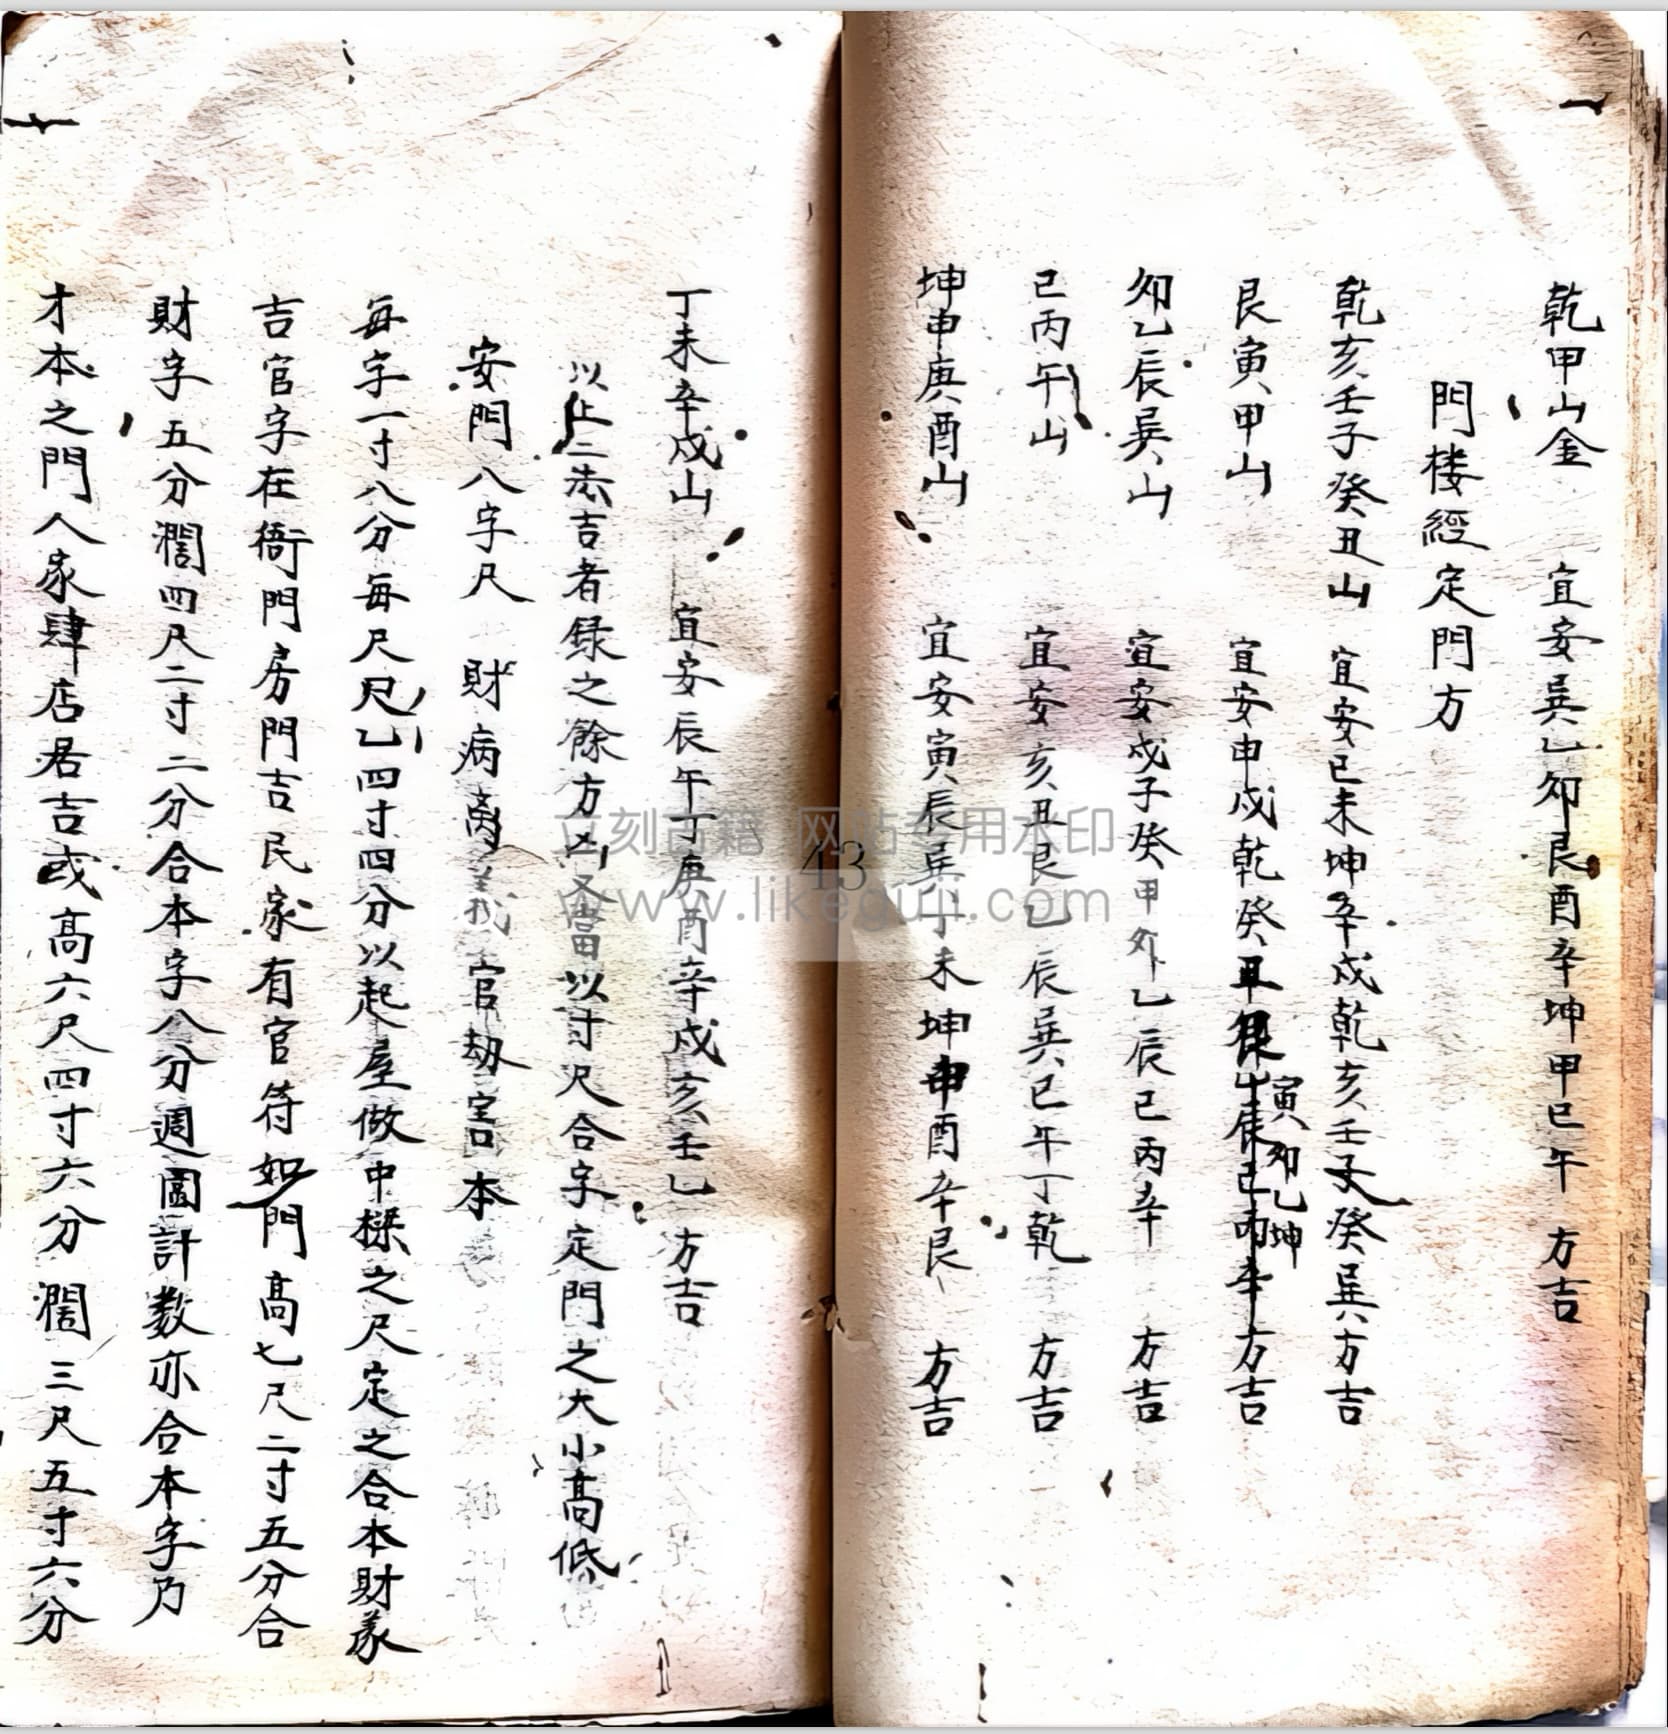 乾甲山金　宜安巽乙卯艮酉辛坤甲巳午　方吉
門楼經定門方
乾亥壬子癸丑山　宜安巳未坤辛戍乾亥壬子癸巽方吉
艮寅甲山　宜安申戍乾癸丑艮寅卯乙坤辰巳丙辛方吉
卯乙辰巽山　宜安戍子癸甲卯乙辰巳丙辛　方吉
巳丙午山　宜安亥丑艮乙辰巽巳午丁乾　方吉
坤申庚酉山　宜安寅辰巽丁未坤申酉辛艮　方吉
丁未辛戍山　宜安辰午丁庚酉辛戍亥壬乙　方吉
以上二志吉者録之餘方凶又當以寸尺合字定門之大小高低
安門八字尺　財病离義官劫害本
每字一寸八分每尺尺乙四寸四分以起屋做中樑之尺定之合本財義
吉官字在衙門房門吉民家有官符如門高七尺二寸五分合
財字五分濶四尺二寸二分合本字八分週圍計数亦合本字乃
才本之門人家肆店居吉或高六尺四寸六分濶三尺五寸六分
立刻古籍 网站专用水印
43
www.likeguji.com